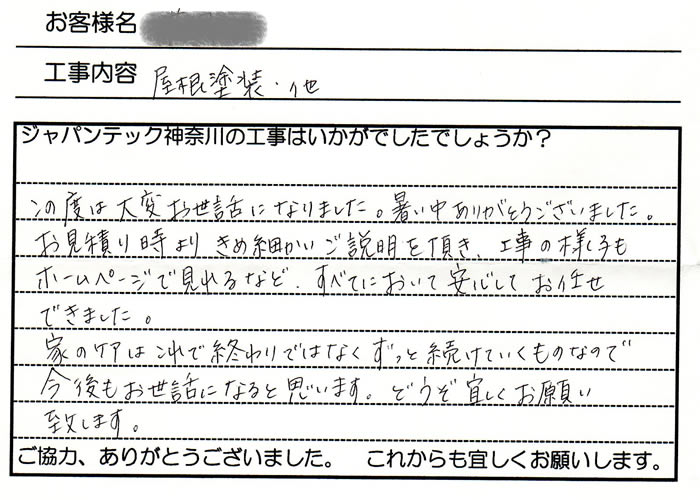 お客様名
工事内容 屋根塗装・他
ジャパンテック神奈川の工事はいかがでしたでしょうか？
この度は大変お世話になりました。暑い中ありがとうございました。
お見積り時よりきめ細かいご説明を頂き、工事の様子も
ホームページで見れるなど、すべてにおいて安心してお任せ
できました。
家のケアはこれで終わりではなくずっと続けていくものなので
今後もお世話になると思います。どうぞ宜しくお願い
致します。
ご協力、ありがとうございました。 これからも宜しくお願いします。